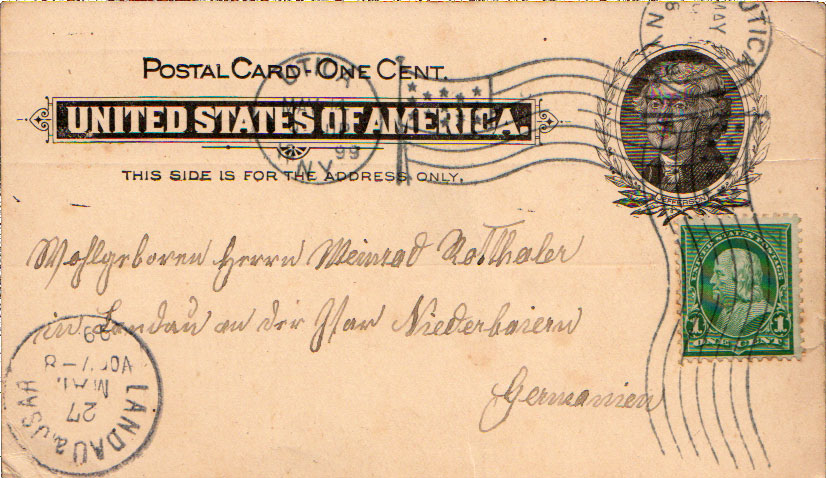 POSTAL CARD - ONE CENT.
UNITED STATES OF AMERICA.
THIS SIDE IS FOR THE ADDRESS ONLY.
UTICA
MAY
99
N.Y.
UTICA
MAY
N.Y.
JEFFERSON
UNITED STATES POSTAGE
1 1
ONE CENT
Wohlgeboren Herrn Meinrad Rotthaler
in Landau an der Isar Niederbaiern
Germanien
LANDAU a. ISAR
27
MAI.
VOR 7-8
99